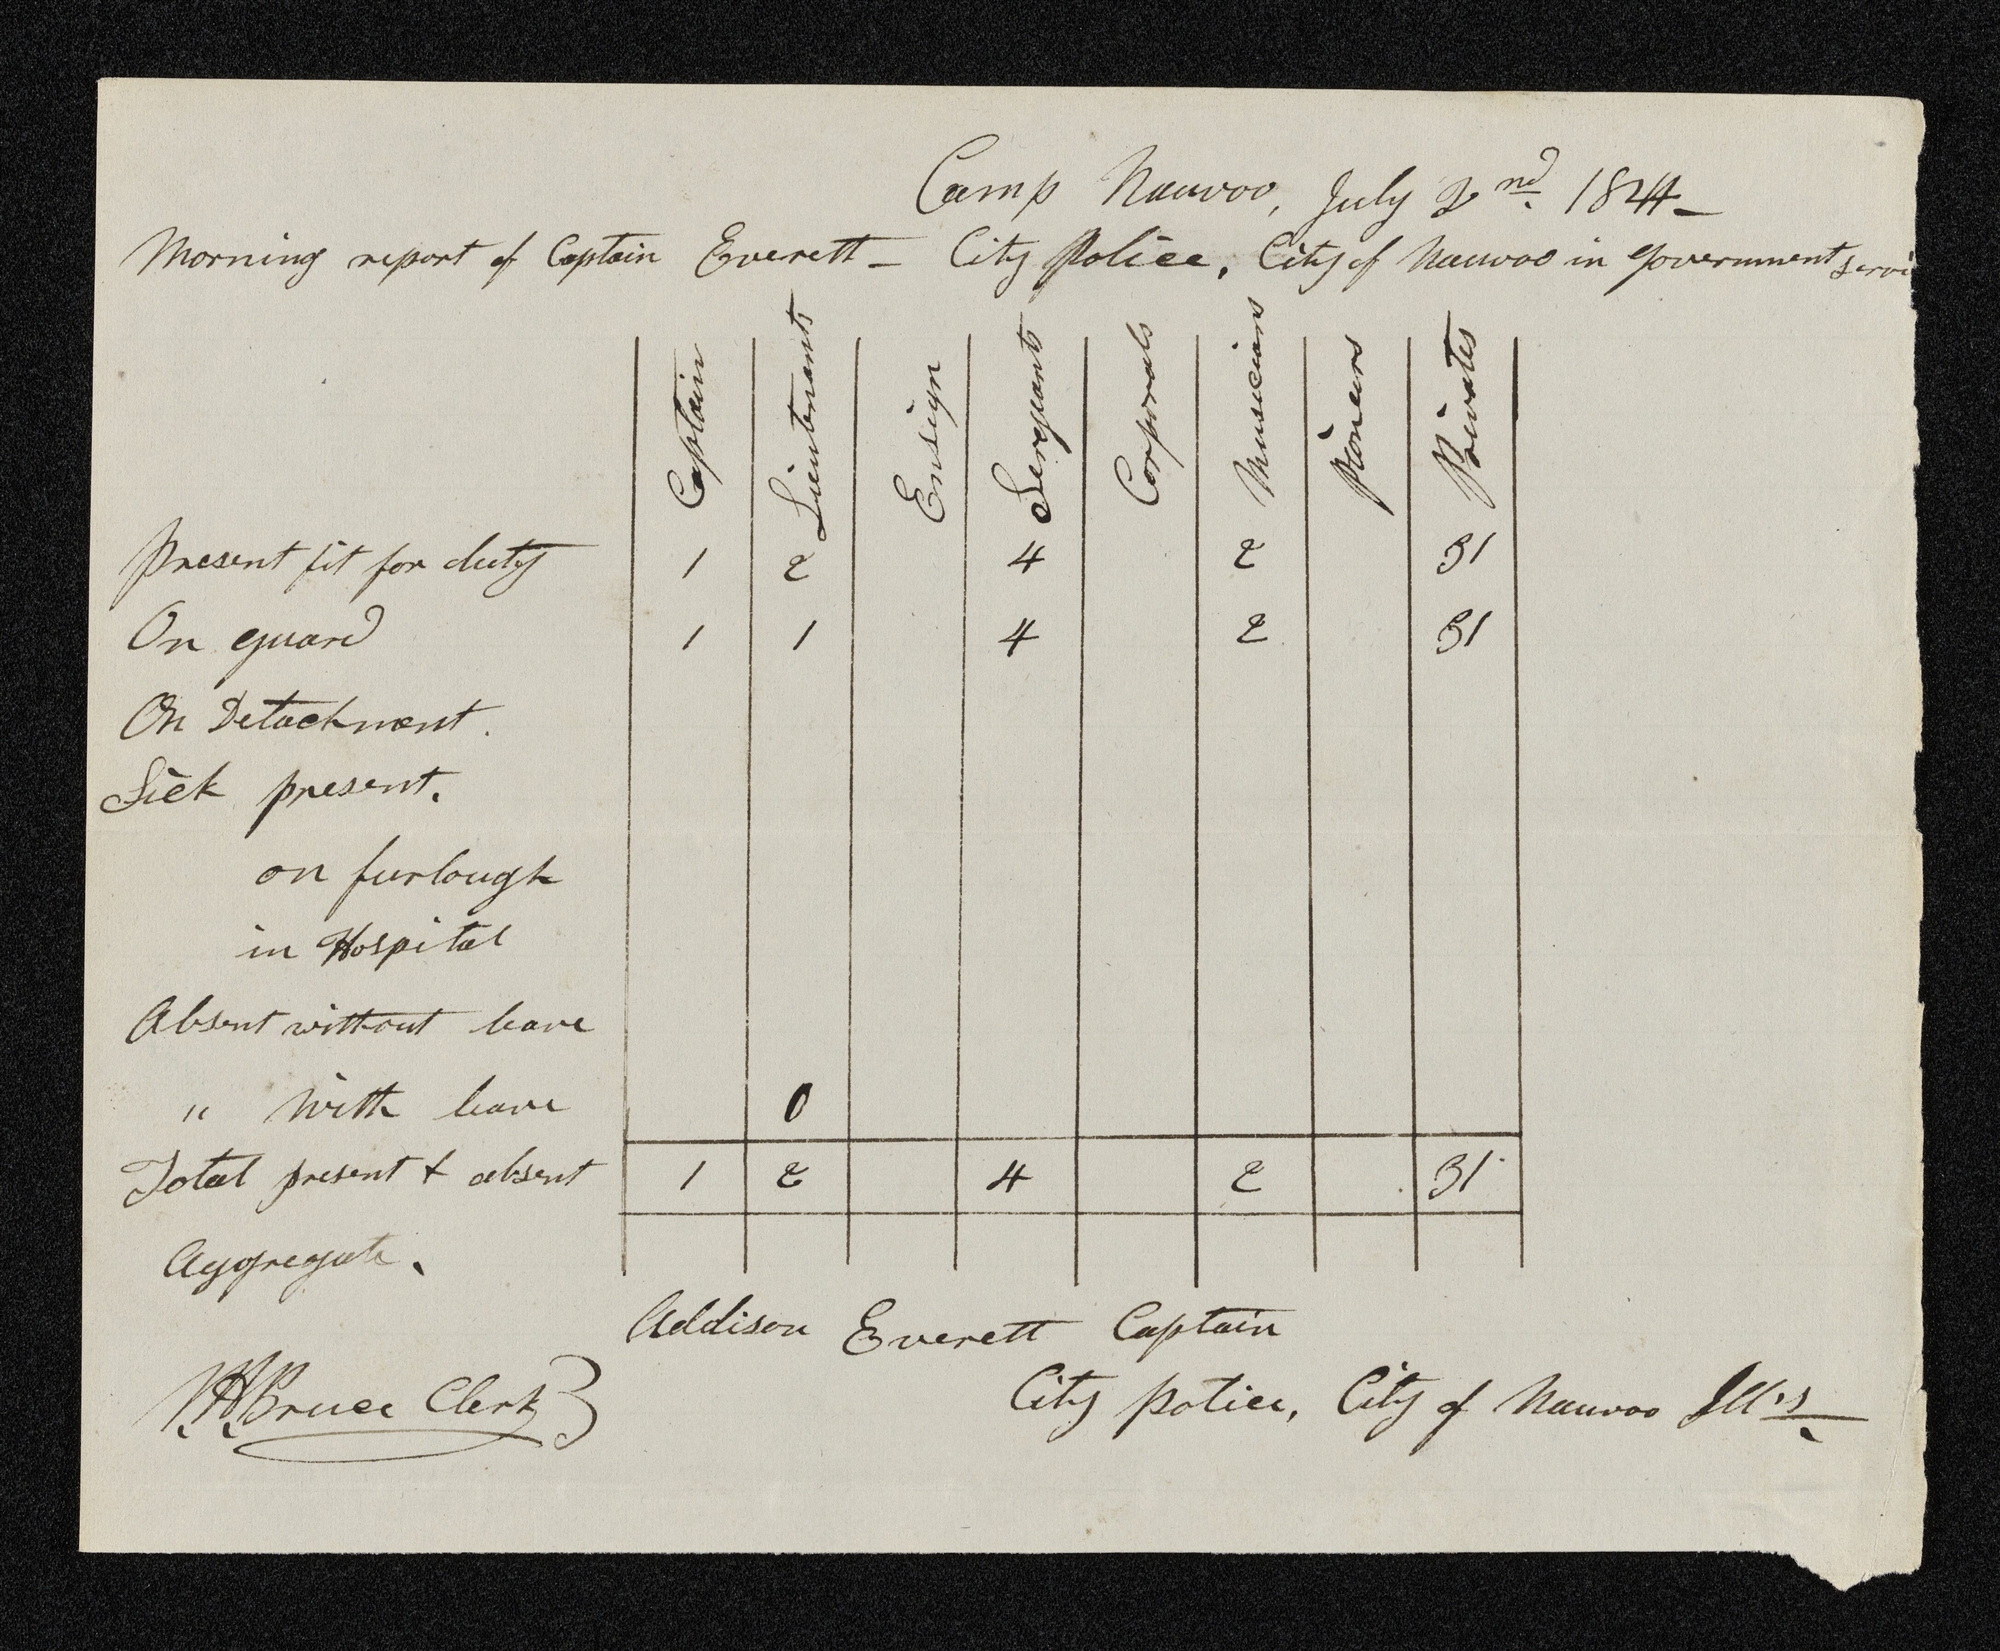 Camp Nauvoo, July 2nd. 1844
Morning report of Captain Everett - City Police, City of Nauvoo in Government servi
Captain Lieutenants Ensign Sergeants Corporals Musicians Pioneers Privates
Present fit for duty 1 2 4 2 31
On guard 1 1 4 2 31
On Detachment.
Sick present.
on furlough
in Hospital
Absent without leave
" With leave 0
Total present & absent 1 2 4 2 31
Aggregate.
Addison Everett Captain
City police, City of Nauvoo Ill's
Bruce Clerk